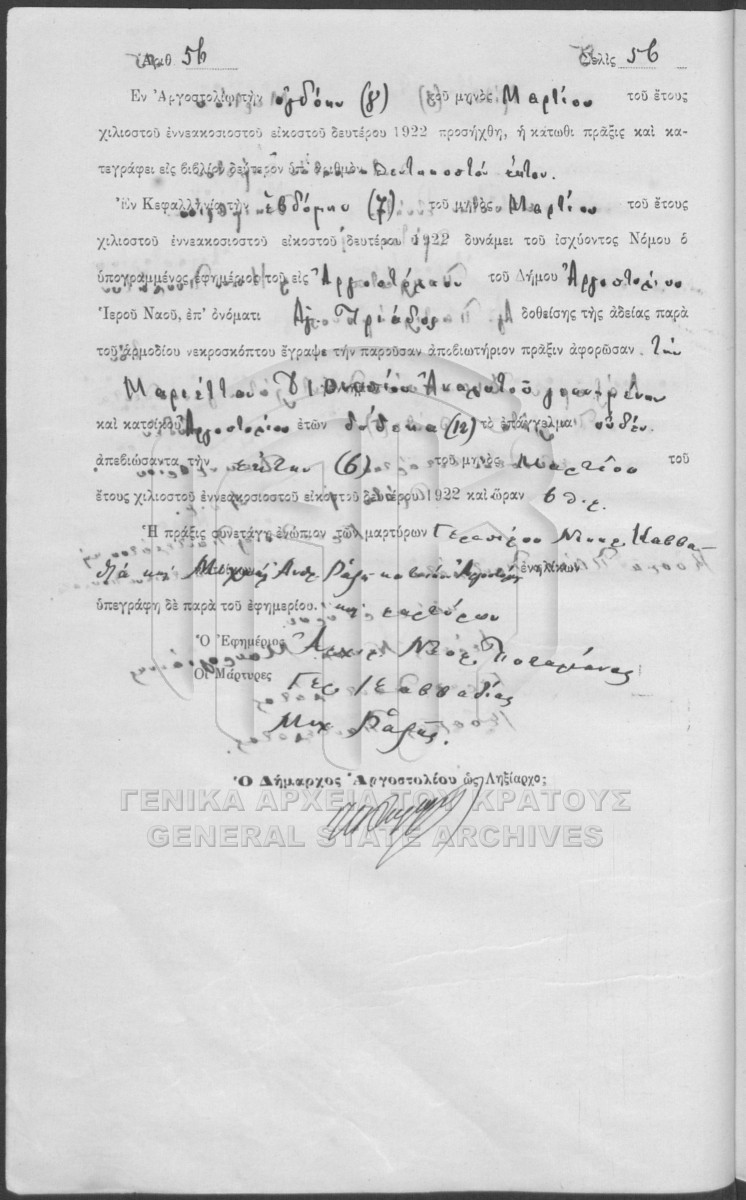 Ἀριθ 56 Σελὶς 56
Ἐν Ἀργοστολίῳ τὴν ὀγδόην (8) τοῦ μηνὸς Μαρτίου τοῦ ἔτους
χιλιοστοῦ ἐννεακοσιοστοῦ εἰκοστοῦ δευτέρου 1922 προσήχθη, ἡ κάτωθι πρᾶξις καὶ κα-
τεγράφει εἰς βιβλίον δεύτερον ὑπ' ἀριθμὸν πεντηκοστὸν ἕκτον.
Ἐν Κεφαλληνίᾳ τὴν ἑβδόμην (7) τοῦ μηνὸς Μαρτίου τοῦ ἔτους
χιλιοστοῦ ἐννεακοσιοστοῦ εἰκοστοῦ δευτέρου 1922 δυνάμει τοῦ ἰσχύοντος Νόμου ὁ
ὑπογραμμένος ἐφημέριος τοῦ εἰς Ἀργοστόλιον τοῦ Δήμου Ἀργοστολίου
Ἱεροῦ Ναοῦ, ἐπ' ὀνόματι Ἁγ. Τριάδος δοθείσης τῆς ἀδείας παρὰ
τοῦ ἁρμοδίου νεκροσκόπτου ἔγραψε τὴν παροῦσαν ἀποβιωτήριον πρᾶξιν ἀφορῶσαν τὴν
Μαριέτταν
καὶ κατοίκου Ἀργοστολίου ἐτῶν δώδεκα (12) τὸ ἐπάγγελμα οὐδέν
ἀπεβιώσαντα τὴν ἕκτην (6) τοῦ μηνὸς Μαρτίου τοῦ
ἔτους χιλιοστοῦ ἐννεακοσιοστοῦ εἰκοστοῦ δευτέρου 1922 καὶ ὥραν 6 π.μ.
Ἡ πρᾶξις συνετάγη ἐνώπιον τῶν μαρτύρων Γερασίμου Νικ. Καββα-
δία καὶ Μιχαὴλ ἐνηλίκων
ὑπεγράφη δὲ παρὰ τοῦ ἐφημερίου. καὶ μαρτύρων
Ὁ Ἐφημέριος
Οἱ Μάρτυρες
Γερ. Καββαδίας
Μιχ
Ὁ Δήμαρχος Ἀργοστολέου ὡς Ληξίαρχος
ΓΕΝΙΚΑ ΑΡΧΕΙΑ ΤΟΥ ΚΡΑΤΟΥΣ
GENERAL STATE ARCHIVES